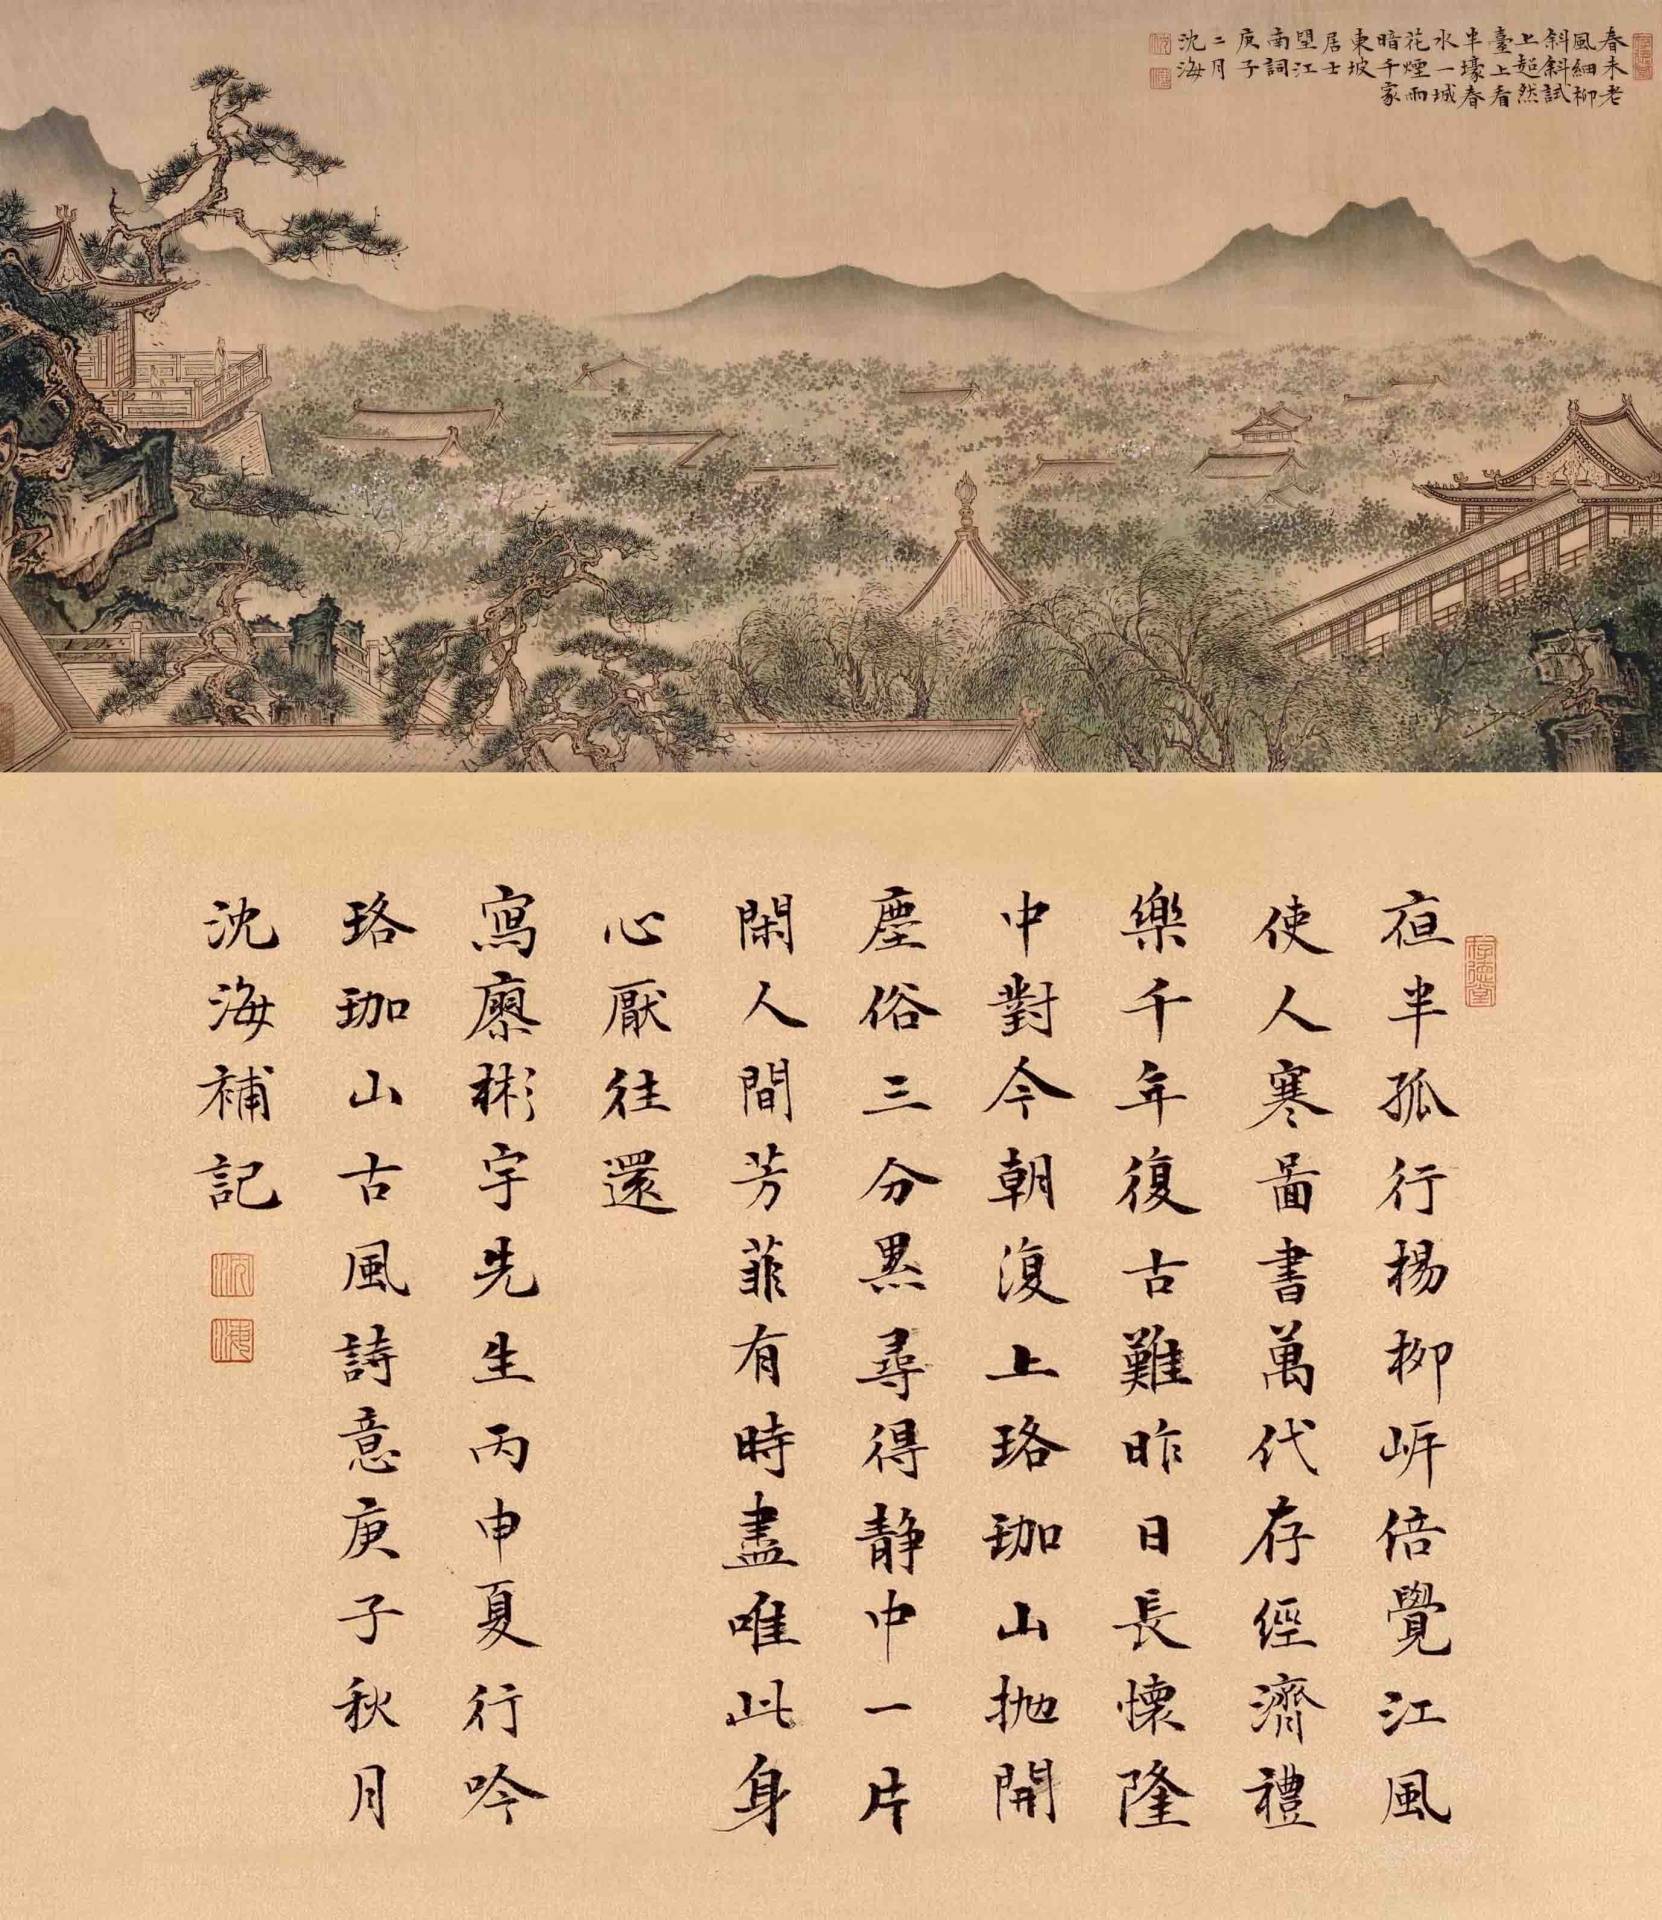 春未老
風細柳
斜斜試
上超然
臺上看
半壕春
水一城
花煙雨
暗千家
東坡
居士
望江
南詞
庚子
二月
沈海
存德堂
夜半孤行楊柳岸倍覺江風
使人寒啚書萬代存經濟禮
樂千年復古難昨日長懷隆
中對今朝復上珞珈山抛開
塵俗三分累尋得静中一片
閑人間芳菲有時盡唯此身
心厭往還
寫廖彬宇先生丙申夏行吟
珞珈山古風詩意庚子秋月
沈海補記
沈
海